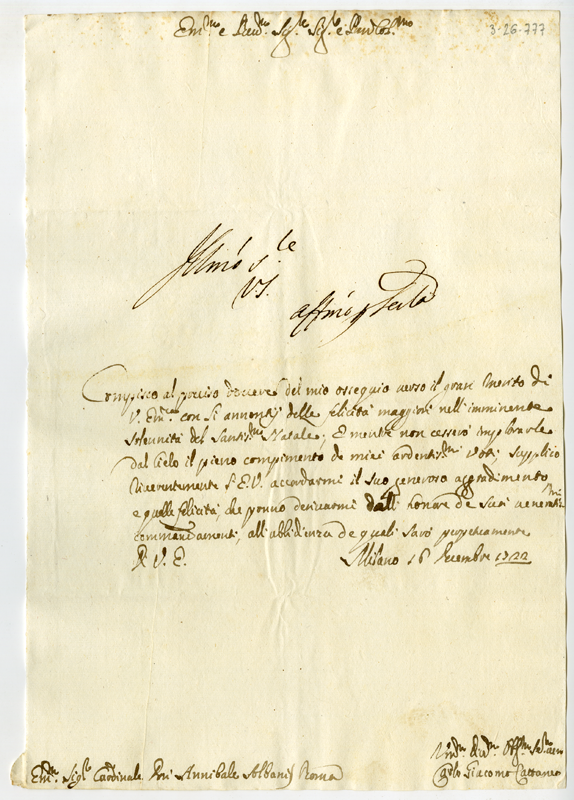 3-26-777
Em.mo e Rev.mo Sig.re Sig.re e Pad.
Illmo S.le
V.S.
affmo Ser
Compisco al preciso dovere del mio ossequio verso il gran merito di
V. Em.za con li annontij delle felicità maggiori nell'imminente
solennità del Santis.mo Natale; E mentre non cesserò implorarle
dal Cielo il pieno compimento de miei ardentis.mi voti, supplico
riverentemente l'E.V. accordarmi il suo generoso aggradimento
e quelle felicità, che ponno derivarmi dall'honore de suoi venerat.mi
commandamenti, all'abbidienza de quali sarò perpetuamente
D. V. E.
Milano 16 Decembre 1722
Em.mo Sig.re Cardinale Annibale Albani Roma
Um.mo Div.mo
Carlo Giacomo Cattaneo